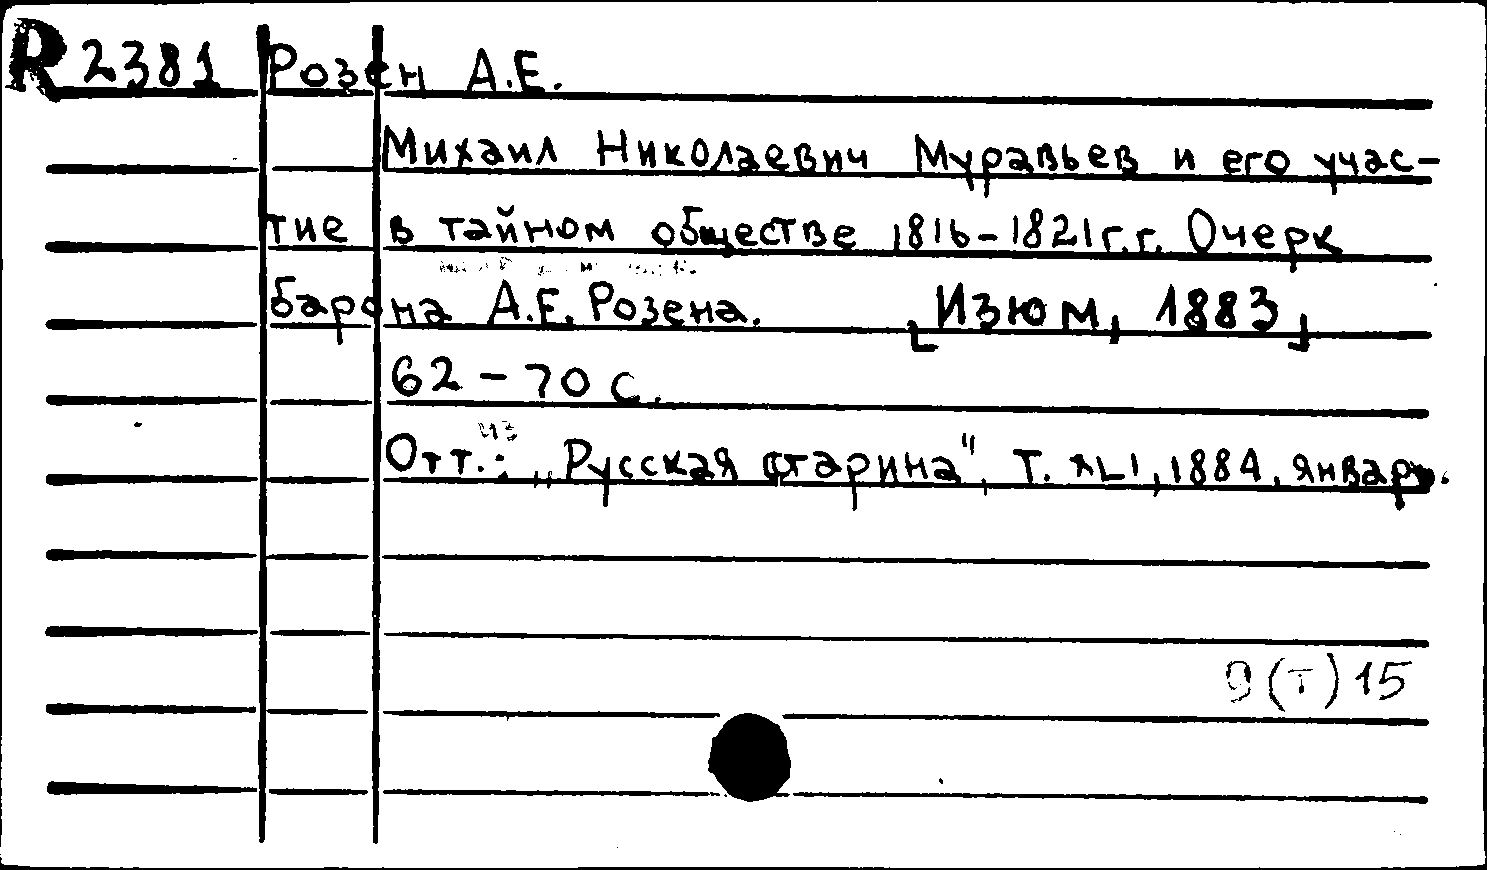 R 2381 Розен А.Е.
Михаил Николаевич Муравьев и его учас-
тие в тайном обществе 1816-1821г.г. Очерк
барона А.Е. Розена. [Изюм, 1883]
62-70 с.
Отт. из: „Русская старина", т. XLI, 1884, январь.
9(т)15